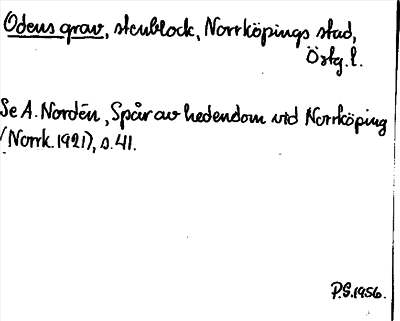 Odens grav, stenblock, Norrköpings stad,
Östg. l.
Se A. Nordén, Spår av hedendom vid Norrköping
(Norrk. 1921), s. 41.
P.S. 1956.